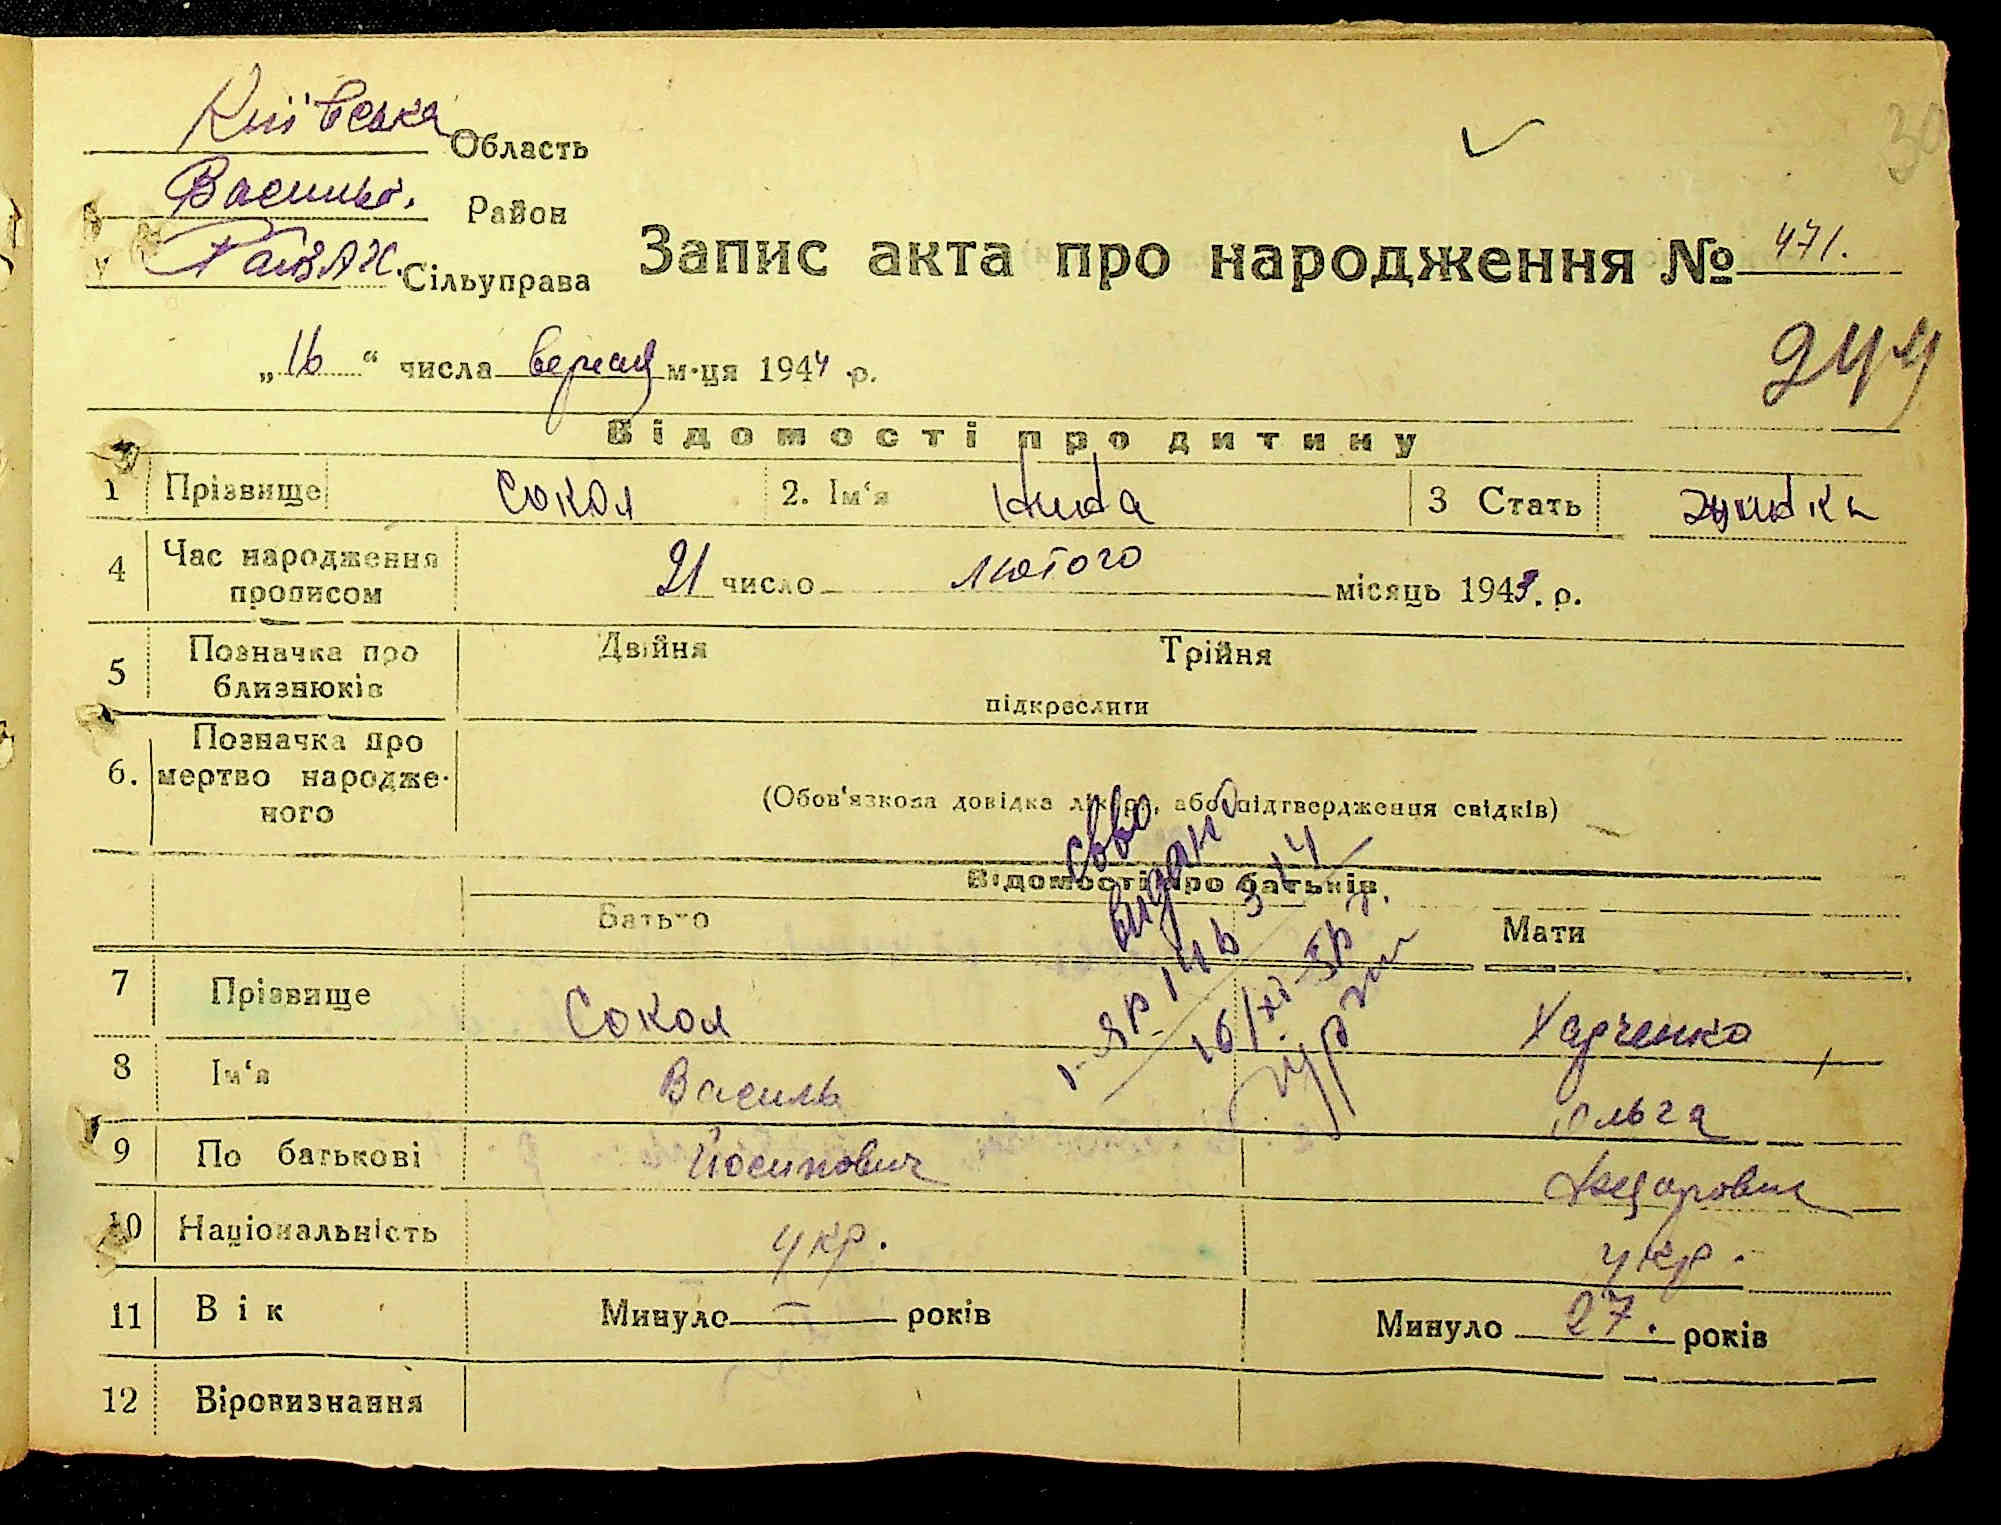 Київська Область
Васильк. Район
РайЗАГС. Сільуправа
30
Запис акта про народження № 471.
„16“ числа вересня м-ця 1944 р.
244
Відомості про дитину
1 Прізвище Сокол 2. Ім'я Ніна 3 Стать
4 Час народження прописом 21 число лютого місяць 1943. р.
5 Позначка про близнюків Двійня Трійня
підкреслити
6. Позначка про мертво народженого
(Обов'язкова довідка лікаря, або підтвердження свідків)
Відомості про батьків.
Батько Мати
видано
7 Прізвище Сокол Харченко
8 Ім'я Василь Ольга
9 По батькові Йосипович
10 Національність укр. укр.
11 Вік Минуло — років Минуло 27. років
12 Віровизнання